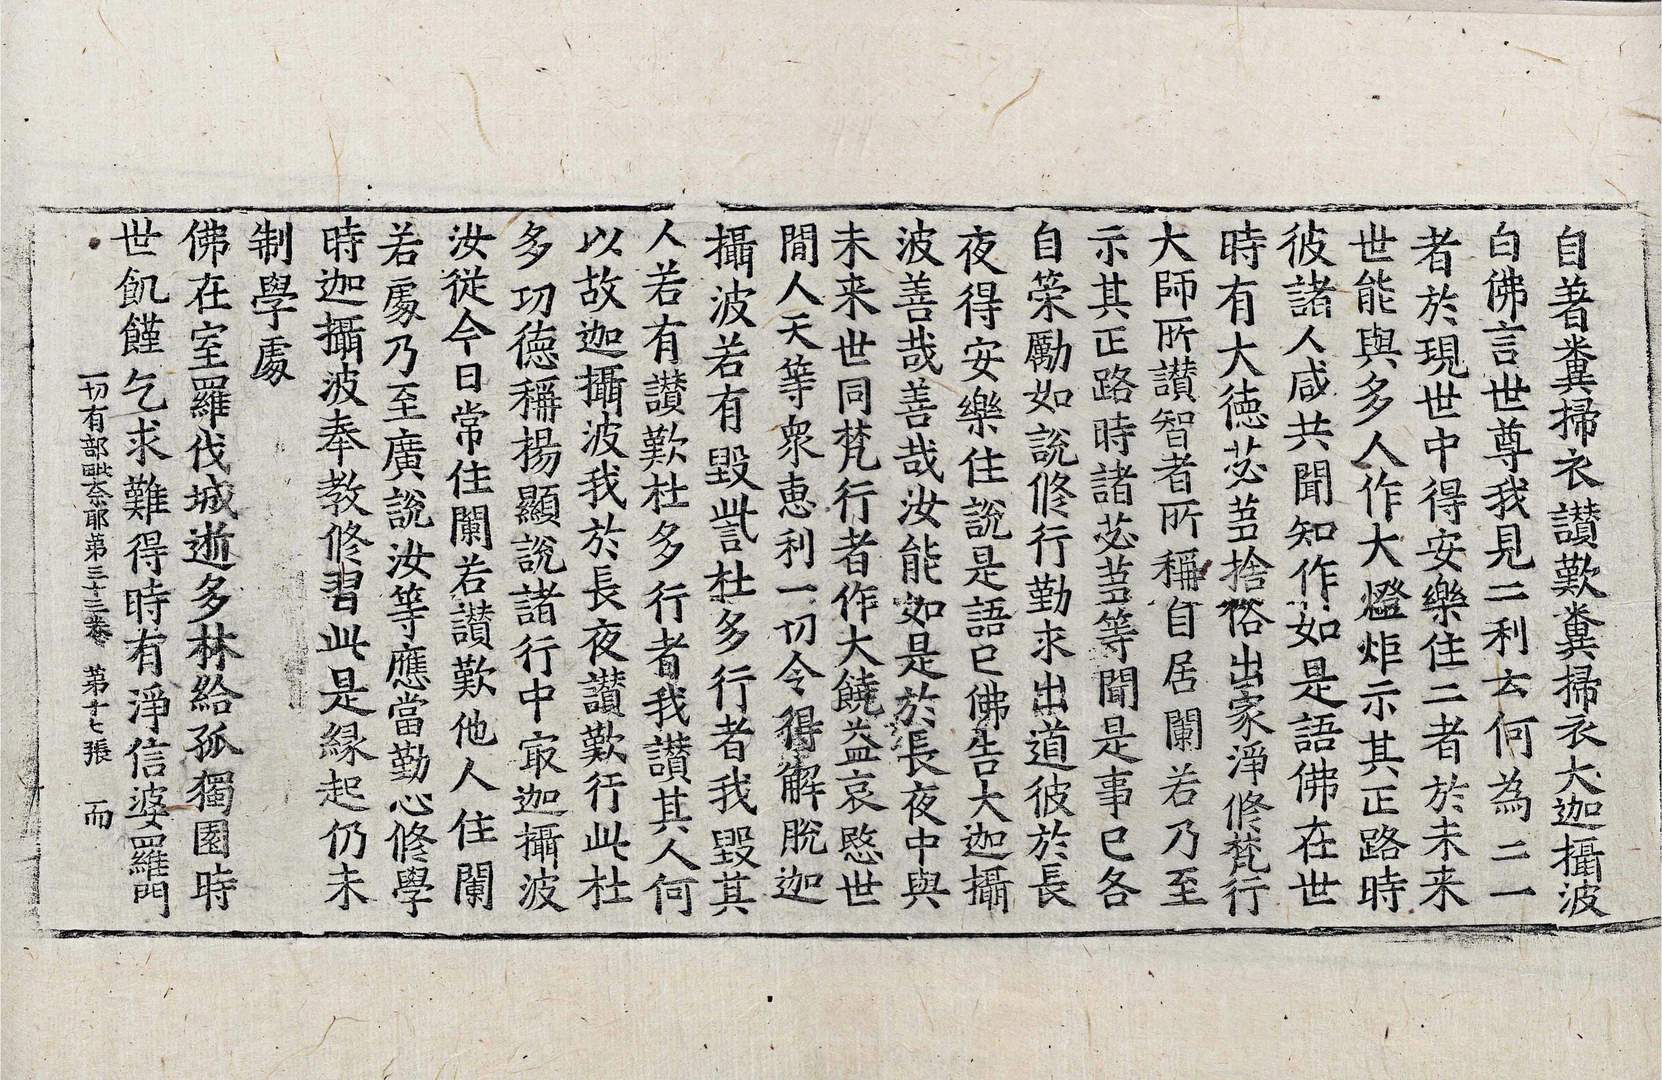 自著糞掃衣讃歎糞掃衣大迦攝波
白佛言世尊我見二利云何為二一
者於現世中得安樂住二者於未来
世能與多人作大燈炬示其正路時
彼諸人咸共聞知作如是語佛在世
時有大德苾芻捨俗出家淨修梵行
大師所讃智者所稱自居闌若乃至
示其正路時諸苾芻等聞是事已各
自策勵如說修行勤求出道彼於長
夜得安樂住說是語已佛告大迦攝
波善哉善哉汝能如是於長夜中與
未来世同梵行者作大饒益哀愍世
間人天等衆惠利一切令得解脫迦
攝波若有毀訾杜多行者我毀其
人若有讃歎杜多行者我讃其人何
以故迦攝波我於長夜讃歎行此杜
多功德稱揚顯說諸行中㝡迦攝波
汝從今日常住闌若讃歎他人住闌
若處乃至廣說汝等應當勤心修學
時迦攝波奉教修習此是緣起仍未
制學處
佛在室羅伐城逝多林給孤獨園時
世飢饉乞求難得時有淨信婆羅門
一切有部毗奈耶第三十三卷 第十七張 而